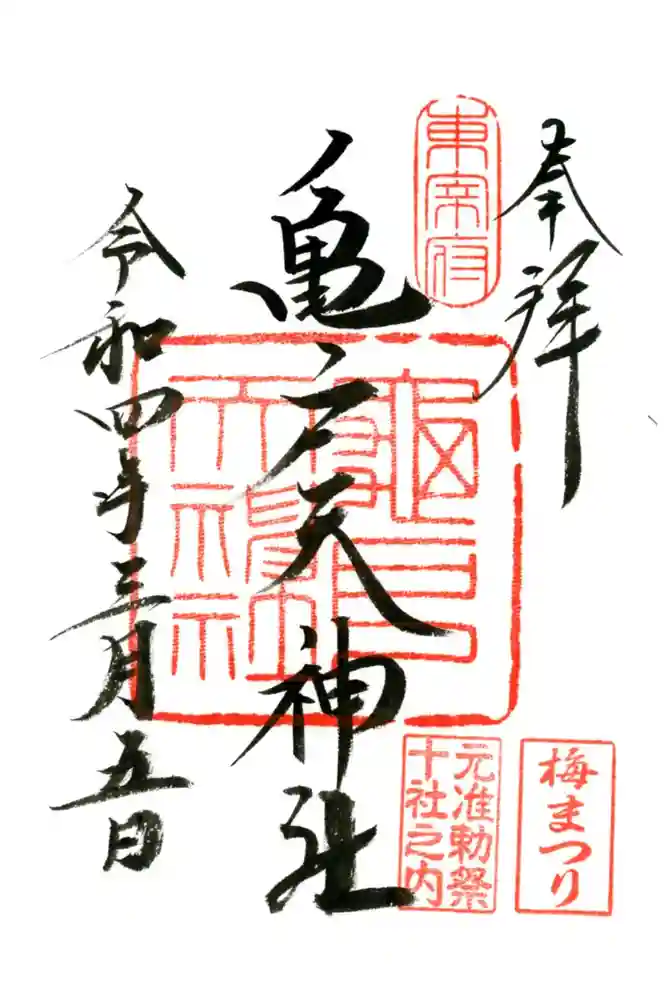 奉拝
東宰府
亀戸天神社
令和四年三月五日
梅まつり
元准勅祭
十社之内